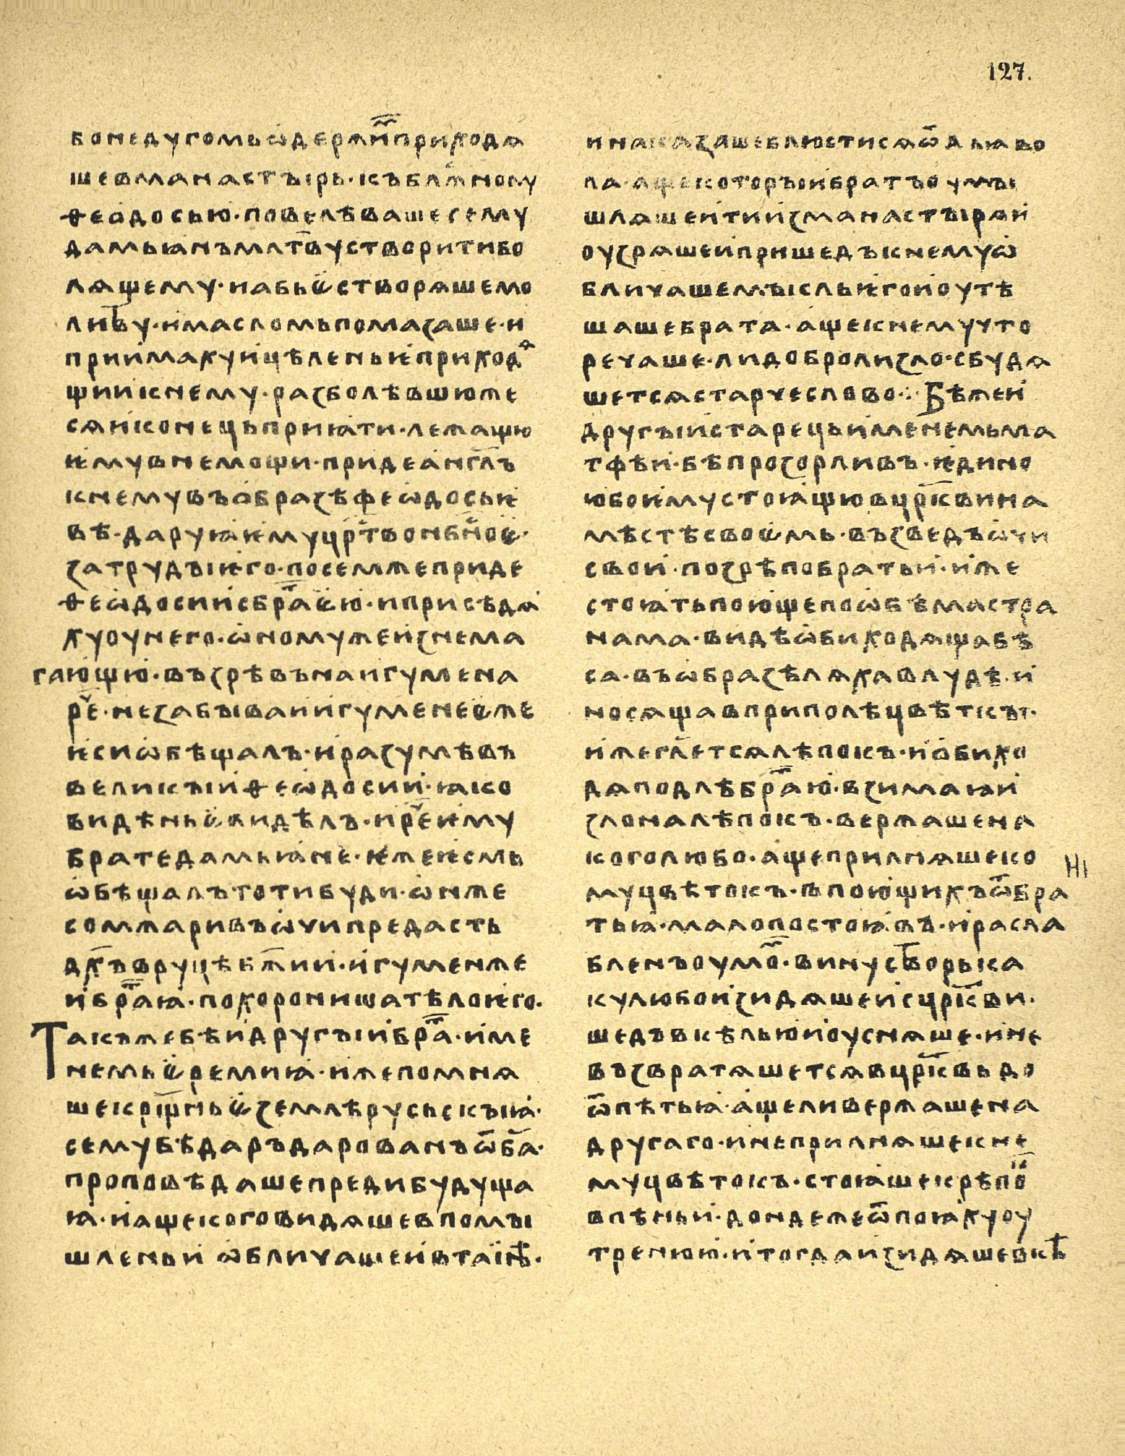 127.
бонедугомьѡдержи́мприходѧ
шевманастъірь·къблж҃ному
ѳеѡ́досью·повелѣвашесему
дамьꙗнꙋмлт҃вустворитибо
лѧщему·иабьѥстворѧшемо
лит҃ву·имасломьпомазаше·и
приимахуицѣленьѥприходѧ
щиикнему·разболѣвшюже
сѧиконецьприꙗти·лежащю
ѥмувнемощи·придеанг҃лъ
кнемувъѡбразѣфеѡдосьѥ
вѣ·даруꙗѥмуцр҃твонбн҃оѥ·
затрудъіѥго·посемжеприде
ѳеѡдосиисбра҃ѥю·иприсѣдѧ
хуоунего·ѡномужеизнема
гающю·възрѣвънаигумена
ре҃·незабываиигуменеѥже
ѥсиѡбѣщалъ·иразумѣвъ
великъіиѳеѡдосии·ꙗко
видѣньѥвидѣлъ·ире҃ѥму
братедамьꙗне·ѥжеѥсмь
ѡбѣщалътотибуди·ѡнже
сомжаривъѡчиипредасть
дх҃ъвруцѣбж҃ии·игуменже
ибра҃ꙗ·похоронишатѣлоѥго·
Такъжебѣидругъіибра҃·име
немьѥремиꙗ·ижепомнѧ
шекрщ҃ньѥземлѣрусьскъіꙗ·
семубѣдаръдарованъѿба҃·
проповѣдашепредибудуща
ꙗ·иащекоговидѧшевпомъі
шленьиѡбличашеивтаинѣ·
инаказашеблюстисѧѿдьꙗво
ла·ащекоторъіибратъоумъі
шлѧшеитиизманастъірѧи
оузрѧшеипришедъкнемуѡ
бличашемъісльѥгоиоутѣ
шашебрата·ащекнемучто
речаше·лидобролизло·сбудѧ
шетсѧстарчеслово·:Бѣжеи
другъіистарецьименемьма
тфѣи·бѣпрозорливъ·ѥдино
юбоѥмустоꙗщювцр҃квина
мѣстѣсвоѥмь·възведъѡчи
свои·позрѣпобратьи·иже
стоꙗтьпоющепоѡбѣмастора
нама·видѣѡбиходѧщабѣ
са·въѡбразѣлѧхавлудѣ·и
носѧщавприполѣцвѣткъі·
ижегл҃етсѧлѣпокъ·иѡбихо
дѧподлѣбра҃ю·взимаꙗи
злоналѣпокъ·вержашена
коголюбо·ащеприлнѧшеко
муцвѣтокъ·впоющихъѿбра
тьꙗ·малопостоꙗвъ·ирасла
бленъоумо҃·винуств҃орька
кулюбоизидѧшеисцр҃кви·
шедъвкѣльюиоуснѧше·ине
възвратѧшетсѧвцр҃квьдо
ѿпѣтьꙗ·ащеливержашена
другаго·инеприлнѧшекне
муцвѣтокъ·стоꙗшекрѣпо
впѣньи·дондежеѿпоꙗхуоу
тренюю·итогдаизидѧшевкѣ